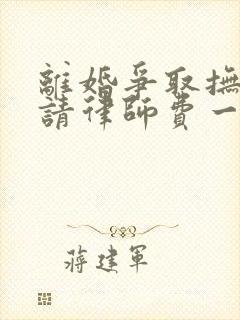 離婚爭取撫
請律師費一
蔣建軍